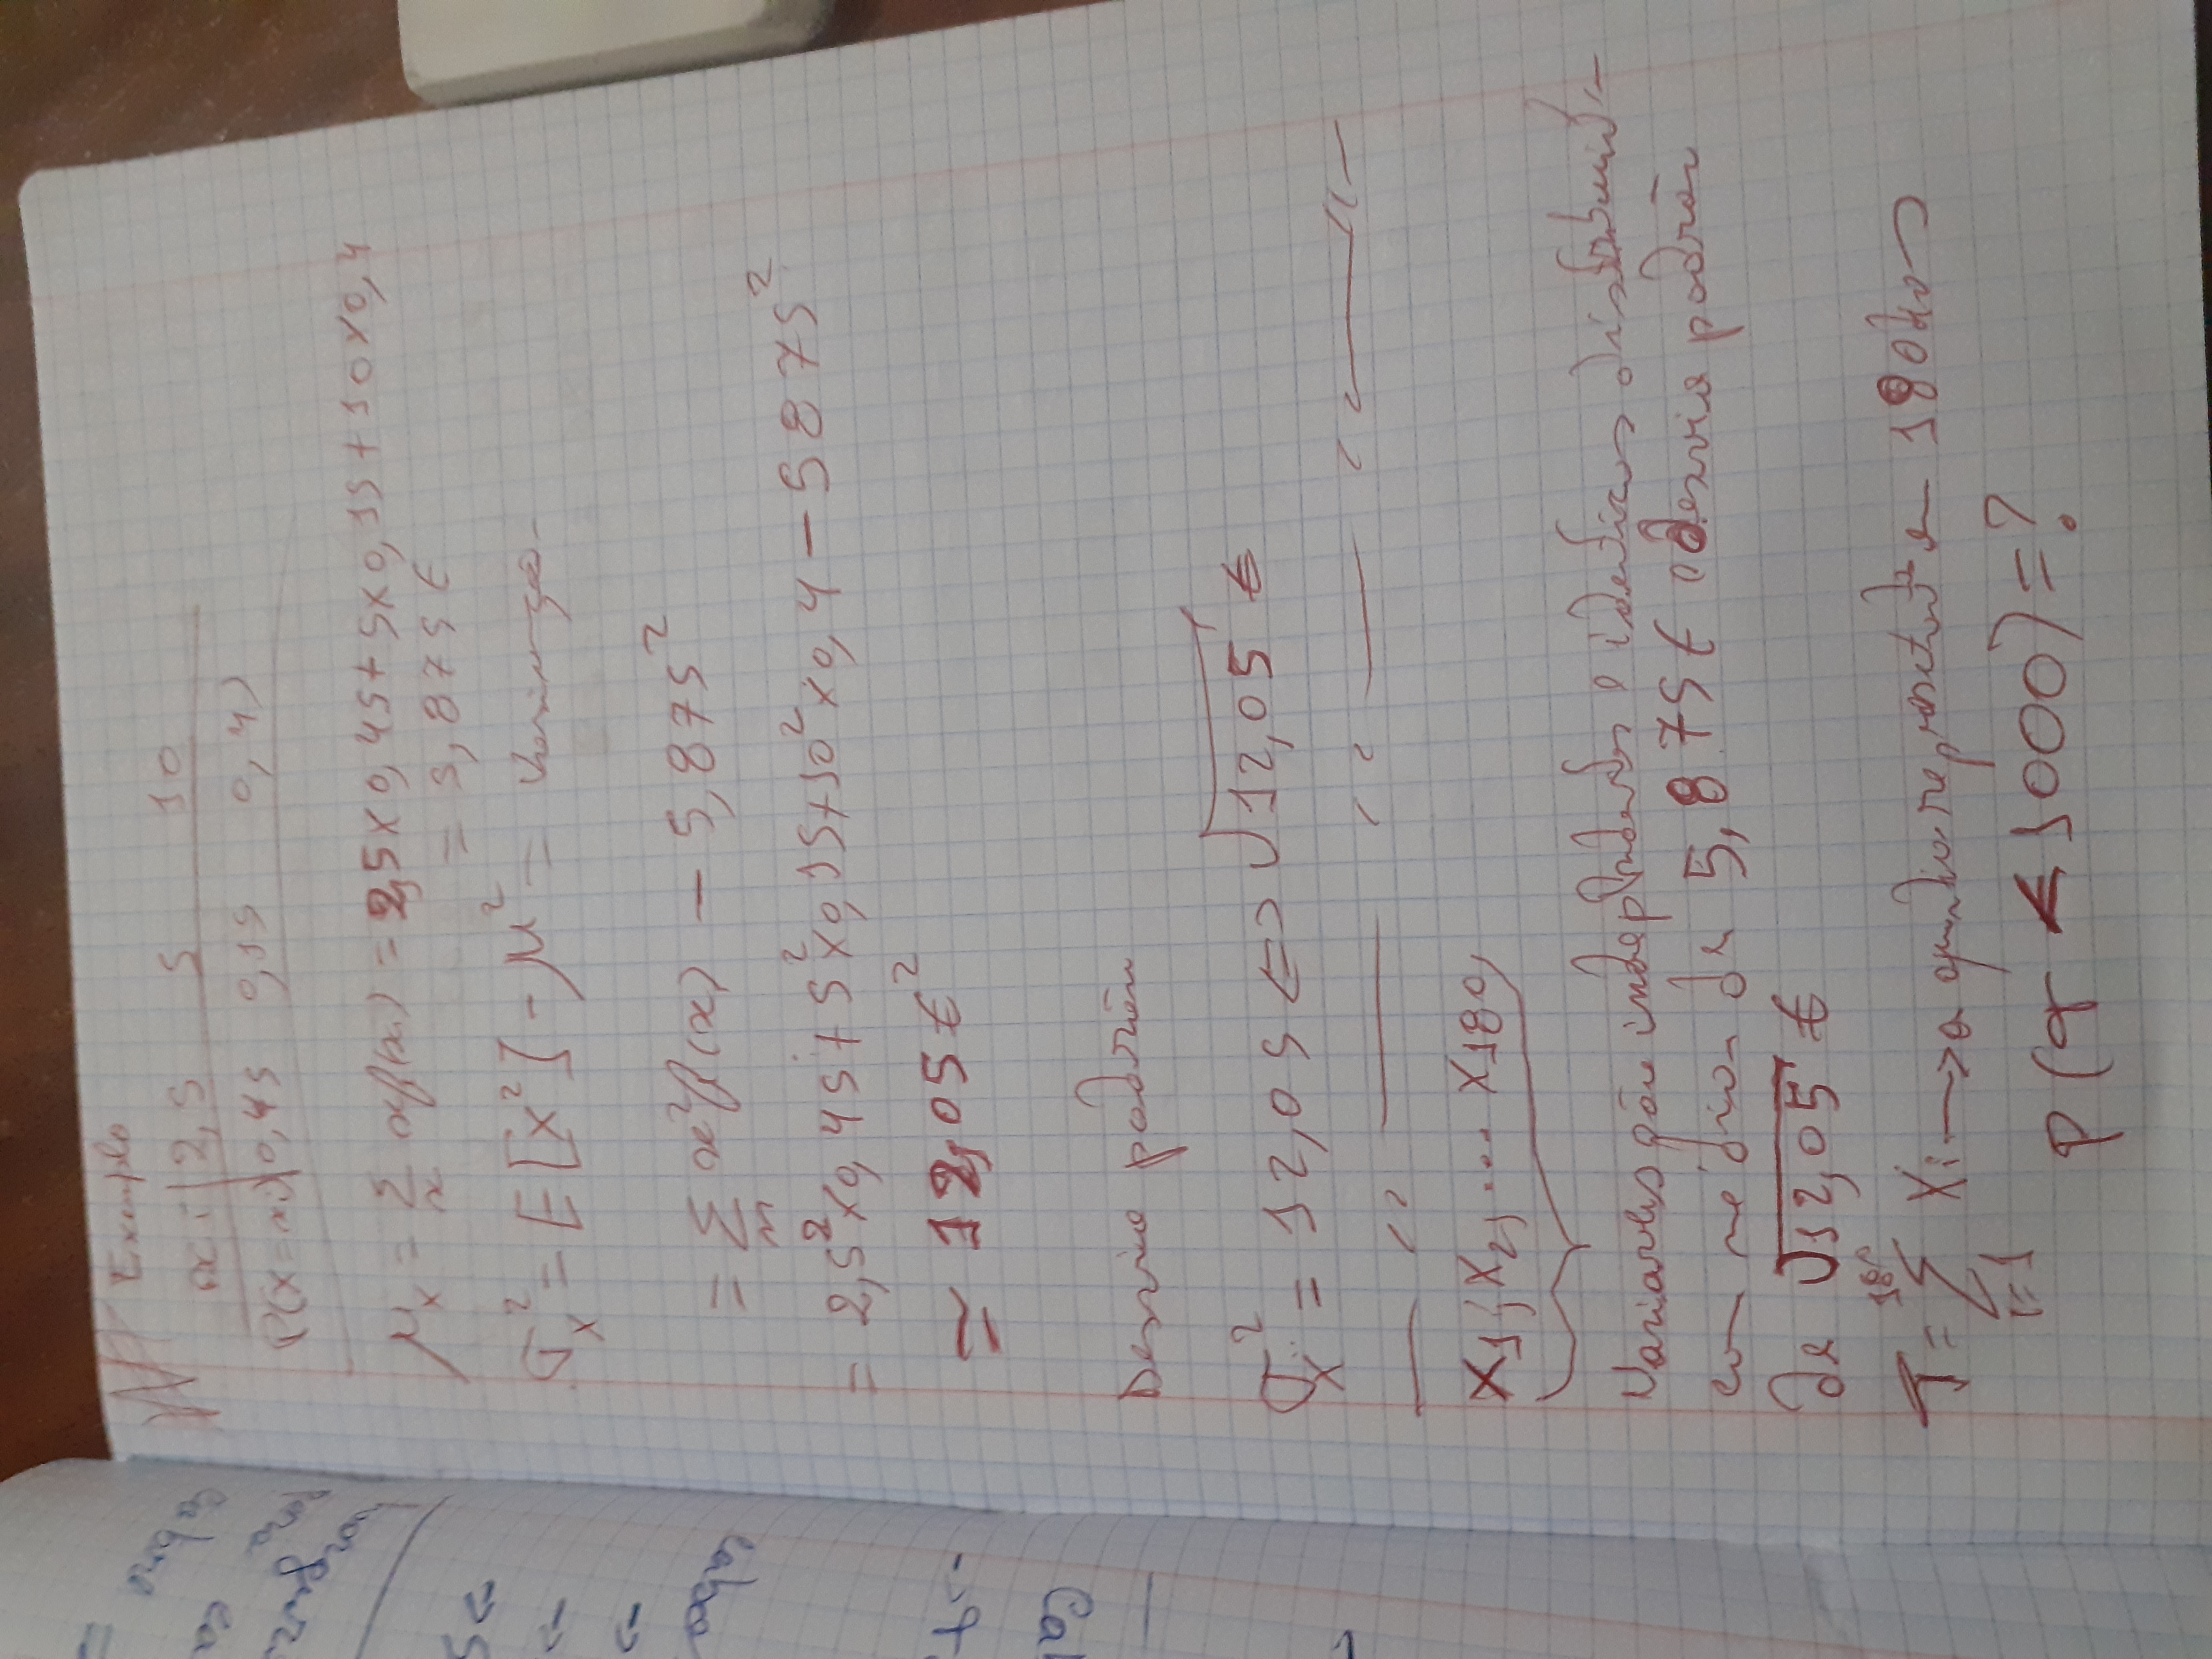 Exemplo
xi | 2,5 5 10
P(X=xi) 0,45 0,15 0,4)
μx = Σ x f(x) = 2,5x0,45+5x0,15+10x0,4
x
= 5,875€
σx² = E[X²] - μ² = Variança
= Σ x² f(x) - 5,875²
= 2,5²x0,45+5²x0,15+10²x0,4-5875²
≈ 12,05€²
Desvio padrão
σx² = 12,05 <=> √12,05 €
X1, X2, ... X180,
Variáveis independentes e identicas distribuid
com média de 5,875€ e desvio padrão
de √12,05 €
T = Σ Xi → a quantia repositada em 180
180
i=1
P(T ≤ 1000) = ?
Cal
caba